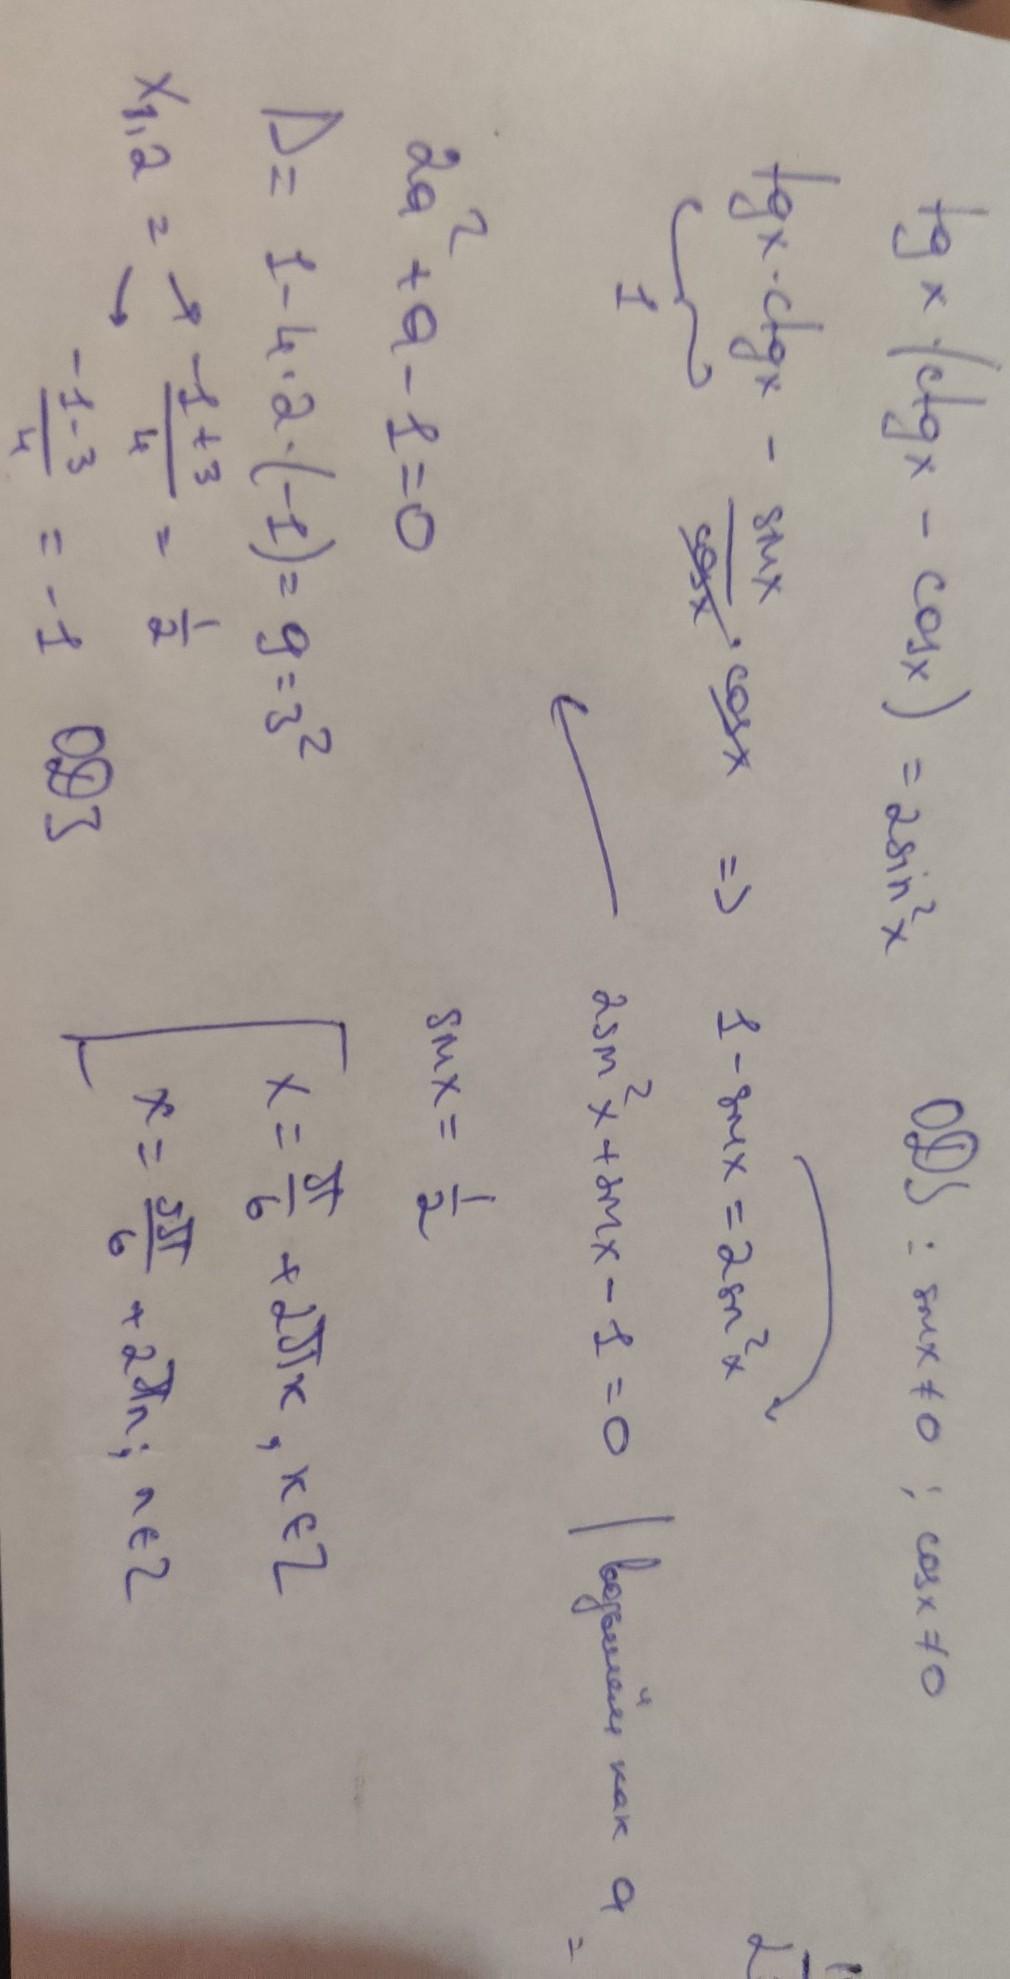 tg x · (ctg x - cos x) = 2sin²x ОДЗ: sin x ≠ 0 ; cos x ≠ 0
tg x · ctg x - sin x / cos x · cos x => 1 - sin x = 2sin²x
1
2sin²x + sin x - 1 = 0 | возьмём как a =
2a² + a - 1 = 0
D = 1 - 4 · 2 · (-1) = 9 = 3²
x1,2 = → -1+3 / 4 = 1/2
→ -1-3 / 4 = -1 ОДЗ
sin x = 1/2
[ x = π/6 + 2πk, k ∈ Z
x = 5π/6 + 2πn; n ∈ Z